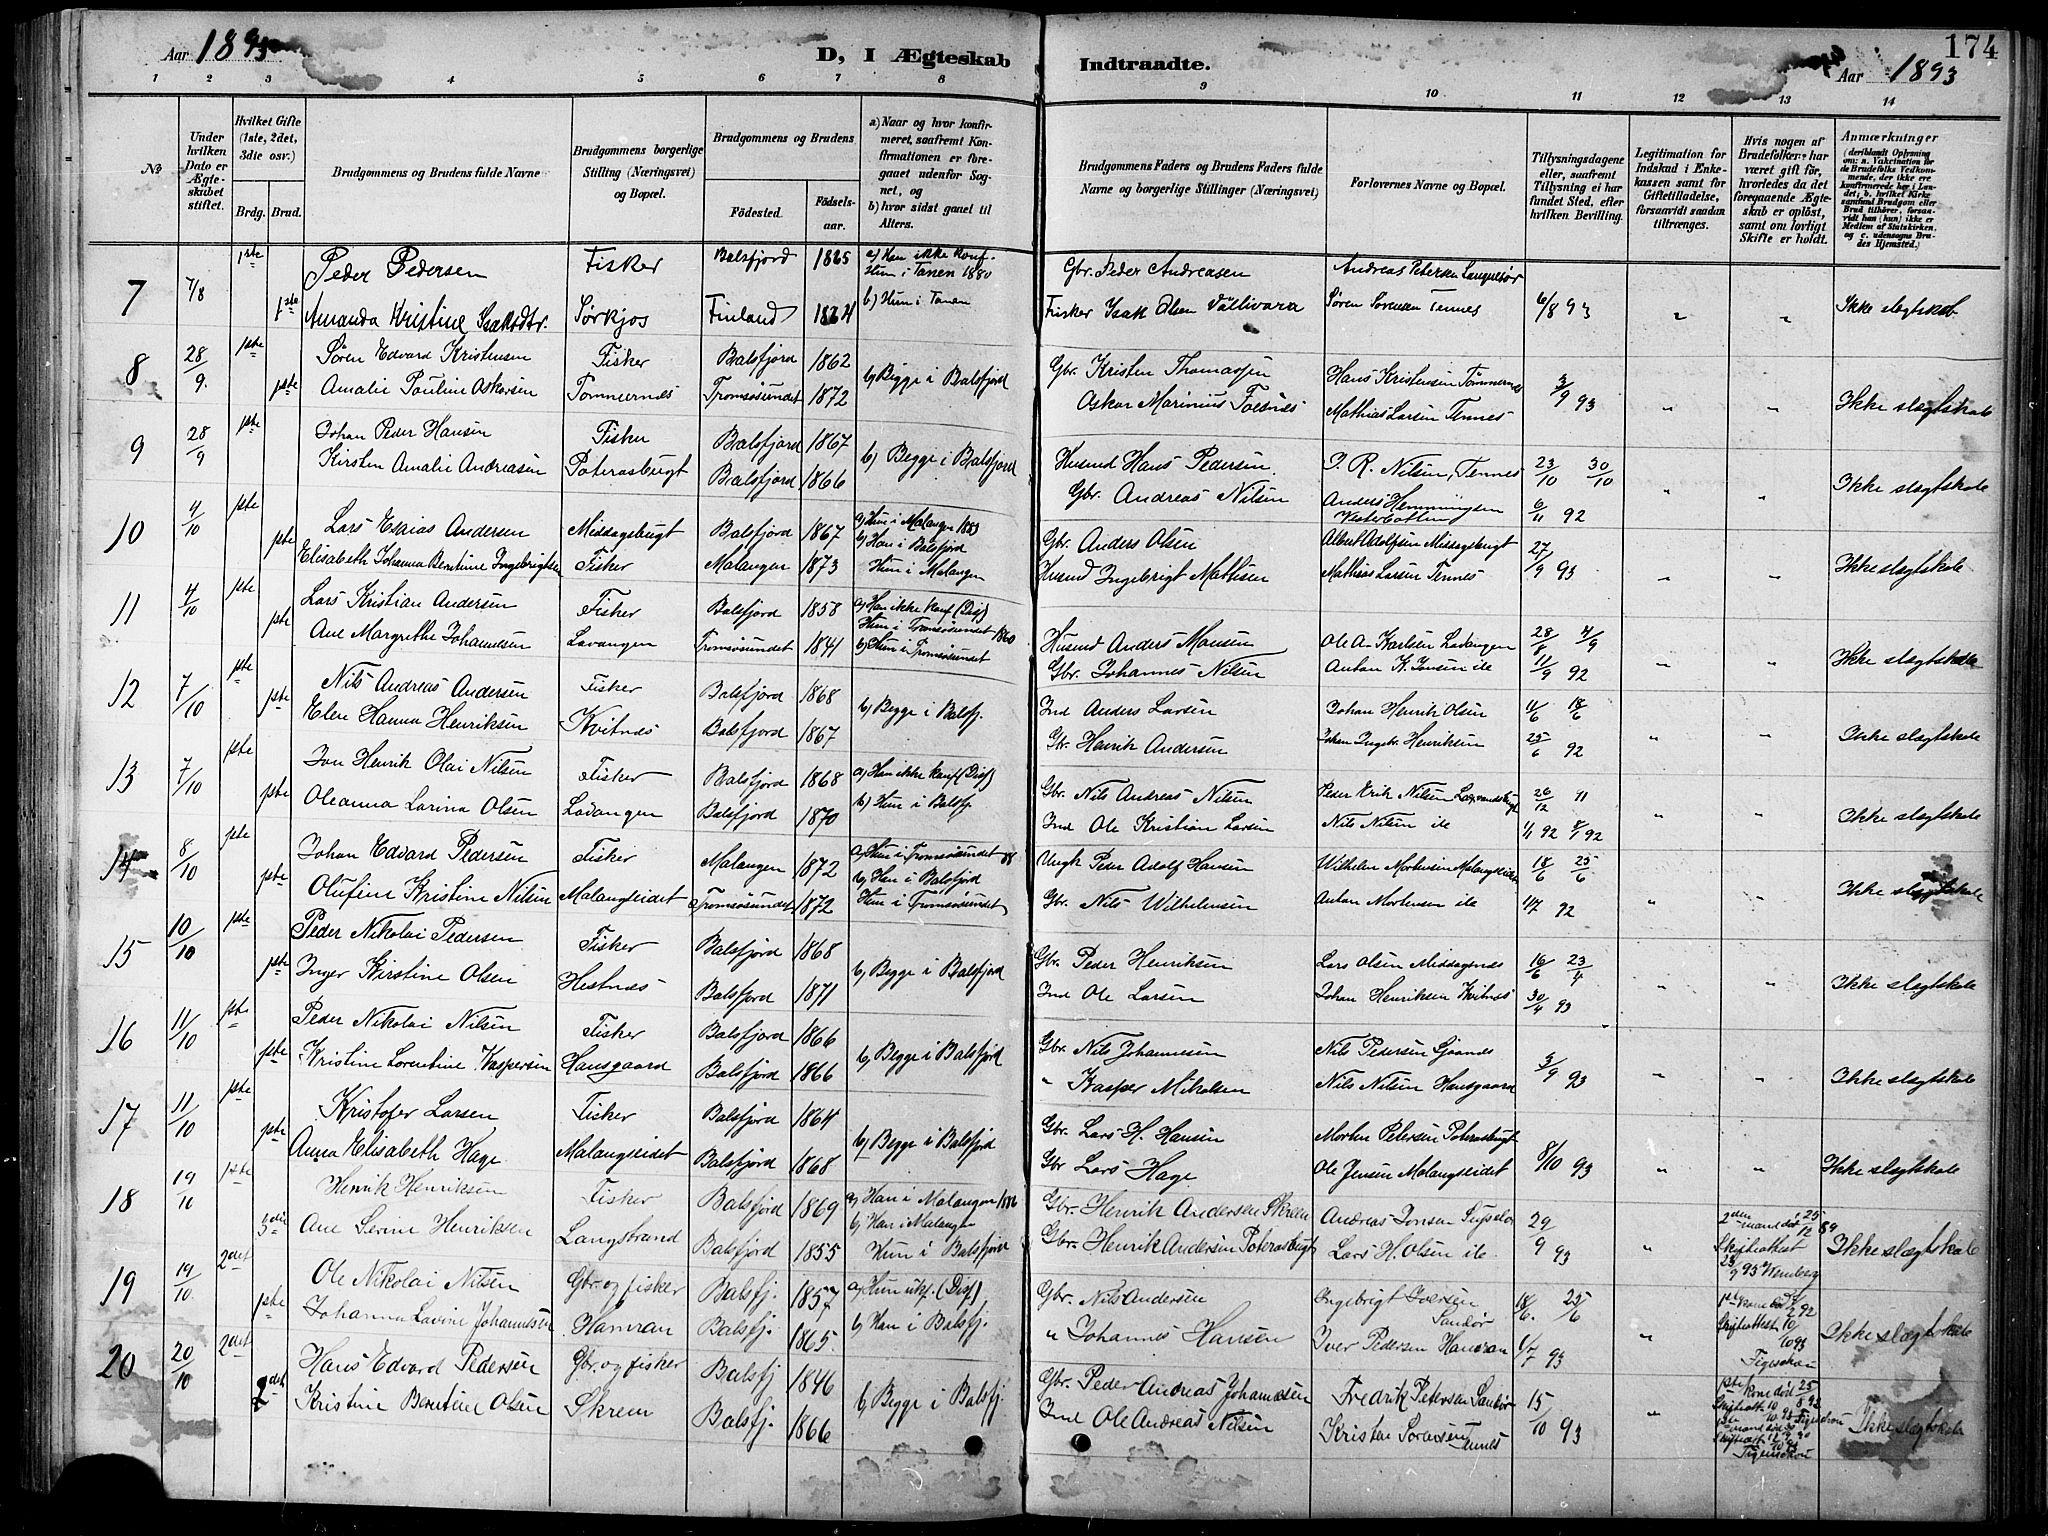 Aar 1893 D, I Ægteskab Indtraadte. Aar 1893 174
1 2 3 4 5 6 7 8 9 10 11 12 13 14
No
Under hvilken Dato er Ægteskabet stiftet.
Hvilket Gifte (1ste, 2det, 3die osv.)
Brdg. Brud.
Brudgommens og Brudens fulde Navne
Brudgommens borgerlige Stilling (Næringsvei) og Bopæl.
Brudgommens og Brudens
Fødested. Fødselsaar.
a) Naar og hvor konfirmeret, saafremt Konfirmationen er foregaaet udenfor Sognet, og
b) hvor sidst gaaet til Alters.
Brudgommens Faders og Brudens Faders fulde Navne og borgerlige Stillinger (Næringsvei)
Forlovernes Navne og Bopæl.
Tillysningsdagene eller, saafremt Tillysning ei har fundet Sted, efter hvilken Bevilling.
Legitimation for Indskud i Enkekassen samt for Giftetilladelse, forsaavidt saadan tiltrænges.
Hvis nogen af Brudefolkene har været gift før, hvorledes da det foregaaende Ægteskab er opløst, samt om lovligt Skifte er holdt.
Anmærkninger
7 7/8 1ste Peder Pedersen Fisker Balsfjord 1865 a) Han ikke konf. Hun i Tanen 1880 Gbr. Peder Andreasen Andreas Petersen
1ste Amanda Kristine Isaksdtr. Sørkjos Finland b) Hun i Tanen Fisker Isak Olsen Vällivara Søren Sørensen Tennes 6/8 93 " " Ikke slegtskab
8 28/9 1ste Søren Edvard Kristensen Fisker Balsfjord 1862 b) Begge i Balsfjord Gbr. Kristen Thomassen Hans Kristensen Tømmernes
1ste Amalie Pauline Oskarsen Tømmernes Tromsøsundet 1872 Oskar Marinus Foesnes Mathias Larsen Tennes 3/9 93 " " Ikke slegtskab
9 28/9 1ste Johan Peder Hansen Fisker Balsfjord 1867 b) Begge i Balsfjord Husmd Hans Pedersen. P. R. Nilsen, Tennes 23/10 30/10
Kirsten Amalie Andreasen Poterasbugt Balsfjord 1866 Gbr. Andreas Nilsen Anders Hemmingsen 6/11 92 " " Ikke slegtskab
10 4/10 1ste Lars Esaias Andersen Middagsbugt Balsfjord 1867 a) Hun i Malangen b) Han i Balsfjord Gbr. Anders Olsen Albert Adolfsen Middagsbugt
1ste Elisabeth Johanna Berntine Ingebrigtsen Fisker Malangen 1873 Hun i Malangen Husmd Ingebrigt Mathisen Mathias Larsen Tennes 27/9 93 " " Ikke slegtskab
11 4/10 1ste Lars Kristian Andersen Fisker Balsfjord 1858 a) Han ikke konf (Disp) Hun i Tromsøsundet 1860 Husmd Anders Monsen Ole A. Karlsen Lavangen 28/8 4/9
1ste Ane Margrethe Johannesen Lavangen Tromsøsundet 1841 b) Hun i Tromsøsundet Gbr. Johannes Nilsen Anton K. Jensen ile 11/9 92 " " Ikke slegtskab
12 7/10 1ste Nils Andreas Andersen Fisker Balsfjord 1868 b) Begge i Balsfj. Ind Anders Larsen Johan Henrik Olsen 11/6 18/6
1ste Elen Hanna Henriksen Kvitnæs Balsfjord 1867 Gbr. Henrik Andersen Johan Ingebr. Henriksen 25/6 92 " " Ikke slegtskab
13 7/10 1ste Jon Henrik Olai Nilsen Fisker Balsfjord 1868 a) Han ikke konf (Disp) Gbr. Nils Andreas Nilsen Peder Erik Nilsen 26/12 11
1ste Oleanna Larina Olsen Lavangen Balsfjord 1870 b) Hun i Balsfj. Ind Ole Kristian Larsen Nils Nilsen ile 1/1 92 8/1 92 " " Ikke slegtskab
14 8/10 1ste Johan Edvard Pedersen Fisker Malangen 1872 a) Hun i Tromsøsundet 88 b) Han i Balsfjord Ungk Peder Adolf Hansen Wilhelm Mortensen Malangseidet 18/6 25/6
1ste Olufine Kristine Nilsen Malangseidet Tromsøsundet 1872 Hun i Tromsøsundet Gbr. Nils Wilhelmsen Anton Mortensen ile 1/7 92 " " Ikke slegtskab
15 10/10 1ste Peder Nikolai Pedersen Fisker Balsfjord 1868 b) Begge i Balsfjord Gbr. Peder Henriksen Lars Olsen Middagsnæs 16/6 23/4
1ste Inger Kirstine Olsen Hestnæs Balsfjord 1871 Ind Ole Larsen Johan Henriksen Kvitnæs 30/4 93 " " Ikke slegtskab
16 11/10 1ste Peder Nikolai Nilsen Fisker Balsfjord 1866 b) Begge i Balsfjord Gbr. Nils Johannesen Nils Pedersen
1ste Kristine Lorentine Kaspersen Hansgaard Balsfjord 1866 " Kasper Mikalsen Nils Nilsen Hansgaard 3/9 93 " " Ikke slegtskab
17 11/10 1ste Kristofer Larsen Fisker Balsfjord 1864 b) Begge i Balsfjord Gbr. Lars H. Hansen Morten Petersen Poterasbugt
1ste Anna Elisabeth Hage Malangseidet Balsfjord 1868 Gbr Lars Hage Ole Jensen Malangseidet 8/10 93 " " Ikke slegtskab
18 19/10 1ste Henrik Henriksen Fisker Balsfjord 1869 a) Han i Malangen 1886 b) Han i Malangen Gbr. Henrik Andersen Skreen Andreas Jonsen 29/9 93
3die Ane Serine Henriksen Langstrand Balsfjord 1855 Hun i Balsfjord Gbr. Henrik Andersen Poterasbugt Lars H. Olsen ile " 2den mand død 25/12 89 Skifteattest 23/9 93 Wemberg Ikke slegtskab
19 19/10 2det Ole Nikolai Nilsen Gbr. og fisker Balsfj. 1857 a) Hun ukf. (Disp) Gbr. Nils Andersen Ingebrigt Iversen Sandør 18/6. 25/6
1ste Johanna Lavine Johannesen Hamran Balsfj. 1865. b) Han i Balsfj. " Johannes Hansen Iver Pedersen Hamran 1/7 93 " 1ste kone død Skifteattest Ikke slegtskab
20 20/10 2det Hans Edvard Pedersen Gbr. og fisker Balsfj 1846 b) Begge i Balsfj. Gbr. Peder Andreas Johannesen Fredrik Petersen Sandør 15/10 93
2det Kristine Berntine Olsen Skreen Balsfj. 1866 Ind Ole Andreas Nilsen Kristen Sørensen Tennes " 1ste kone død 25/8 92 Ikke slegtskab